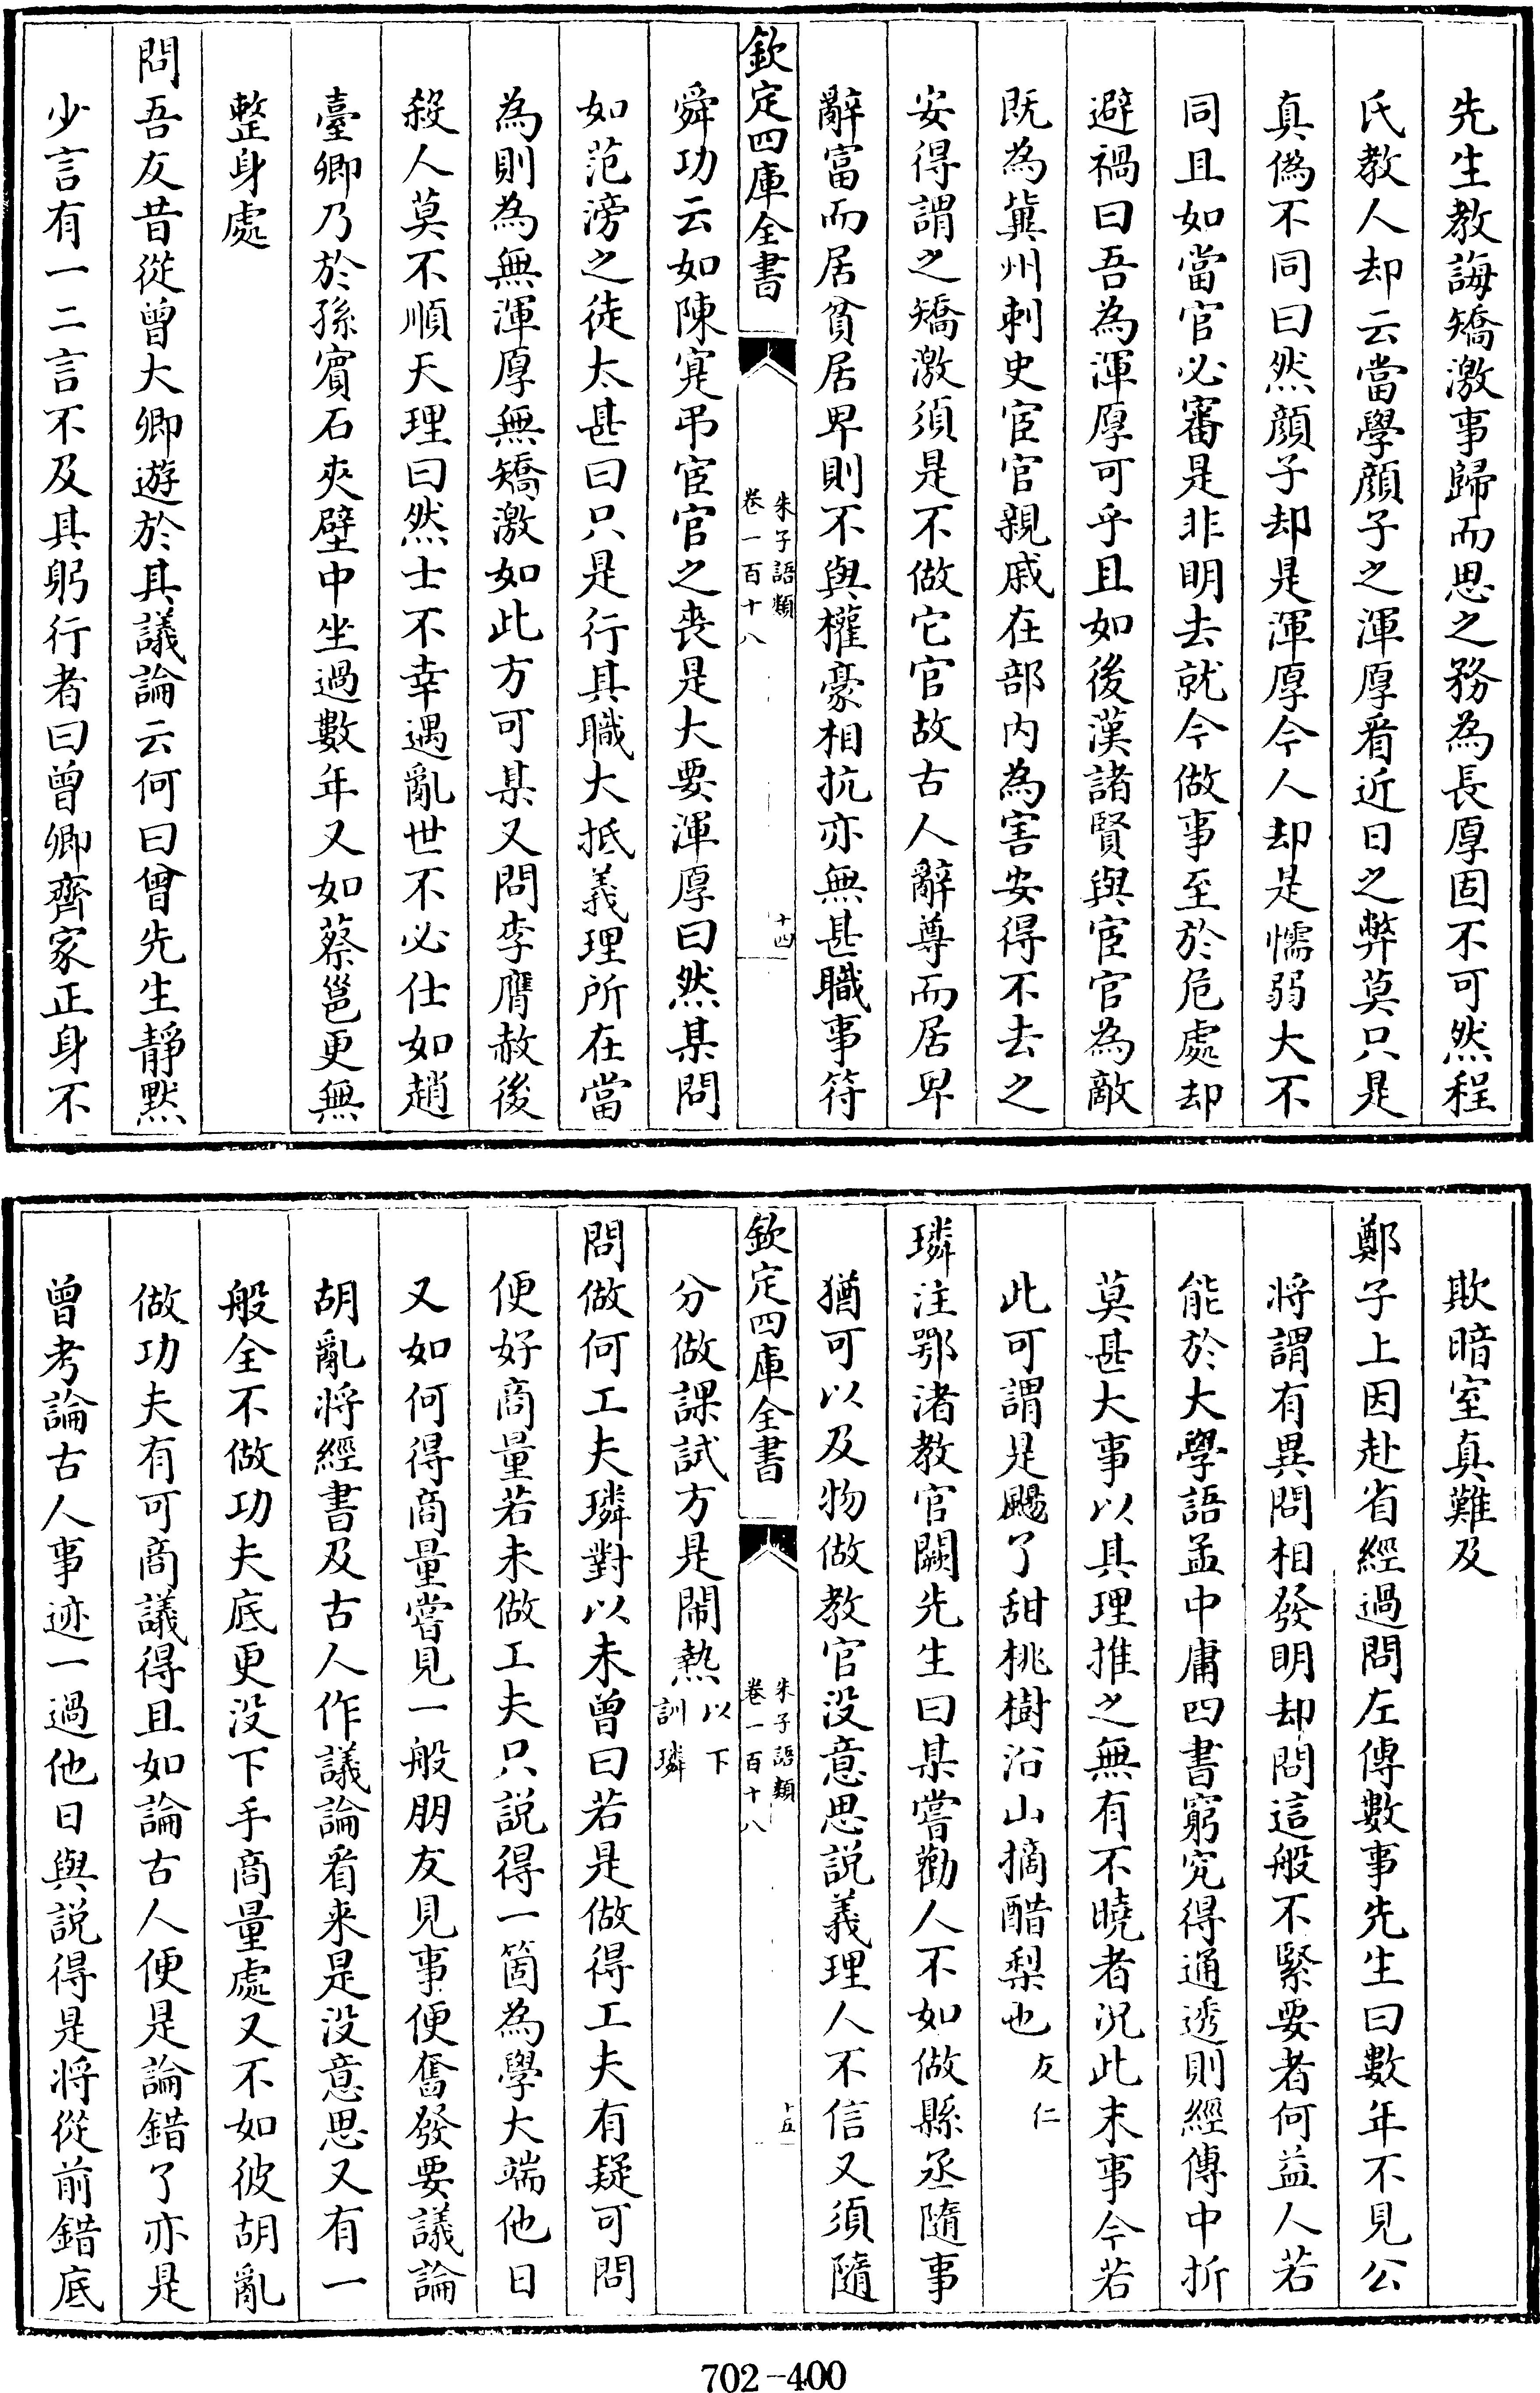 先生教誨矯激事歸而思之務為長厚固不可然程
氏教人却云當學顔子之渾厚看近日之弊莫只是
真偽不同曰然顔子却是渾厚今人却是懦弱大不
同且如當官必審是非明去就今做事至於危處却
避禍曰吾為渾厚可乎且如後漢諸賢與宦官為敵
既為冀州刺史宦官親戚在部内為害安得不去之
安得謂之矯激須是不做它官故古人辭尊而居卑
辭富而居貧居卑則不與權豪相抗亦無甚職事符
欽定四庫全書
朱子語類
卷一百十八
十四
舜功云如陳寔弔宦官之喪是大要渾厚曰然某問
如范滂之徒太甚曰只是行其職大抵義理所在當
為則為無渾厚無矯激如此方可某又問李膺赦後
殺人莫不順天理曰然士不幸遇亂世不必仕如趙
臺卿乃於孫賓石夾壁中坐過數年又如蔡邕更無
整身處
問吾友昔從曾大卿遊於其議論云何曰曾先生靜黙
少言有一二言不及其躬行者曰曾卿齊家正身不
欺暗室真難及
鄭子上因赴省經過問左傳數事先生曰數年不見公
將謂有異問相發明却問這般不緊要者何益人若
能於大學語孟中庸四書窮究得通透則經傳中折
莫甚大事以其理推之無有不曉者况此末事今若
此可謂是颺了甜桃樹沿山摘醋梨也 友仁
璘注鄂渚教官闕先生曰某嘗勸人不如做縣丞隨事
猶可以及物做教官没意思説義理人不信又須隨
欽定四庫全書
朱子語類
卷一百十八
十五
分做課試方是鬧熱 以下訓璘
問做何工夫璘對以未曾曰若是做得工夫有疑可問
便好商量若未做工夫只説得一箇為學大端他日
又如何得商量嘗見一般朋友見事便奮發要議論
胡亂將經書及古人作議論看来是没意思又有一
般全不做功夫底更没下手商量處又不如彼胡亂
做功夫有可商議得且如論古人便是論錯了亦是
曾考論古人事迹一過他日與説得是將從前錯底
702-400